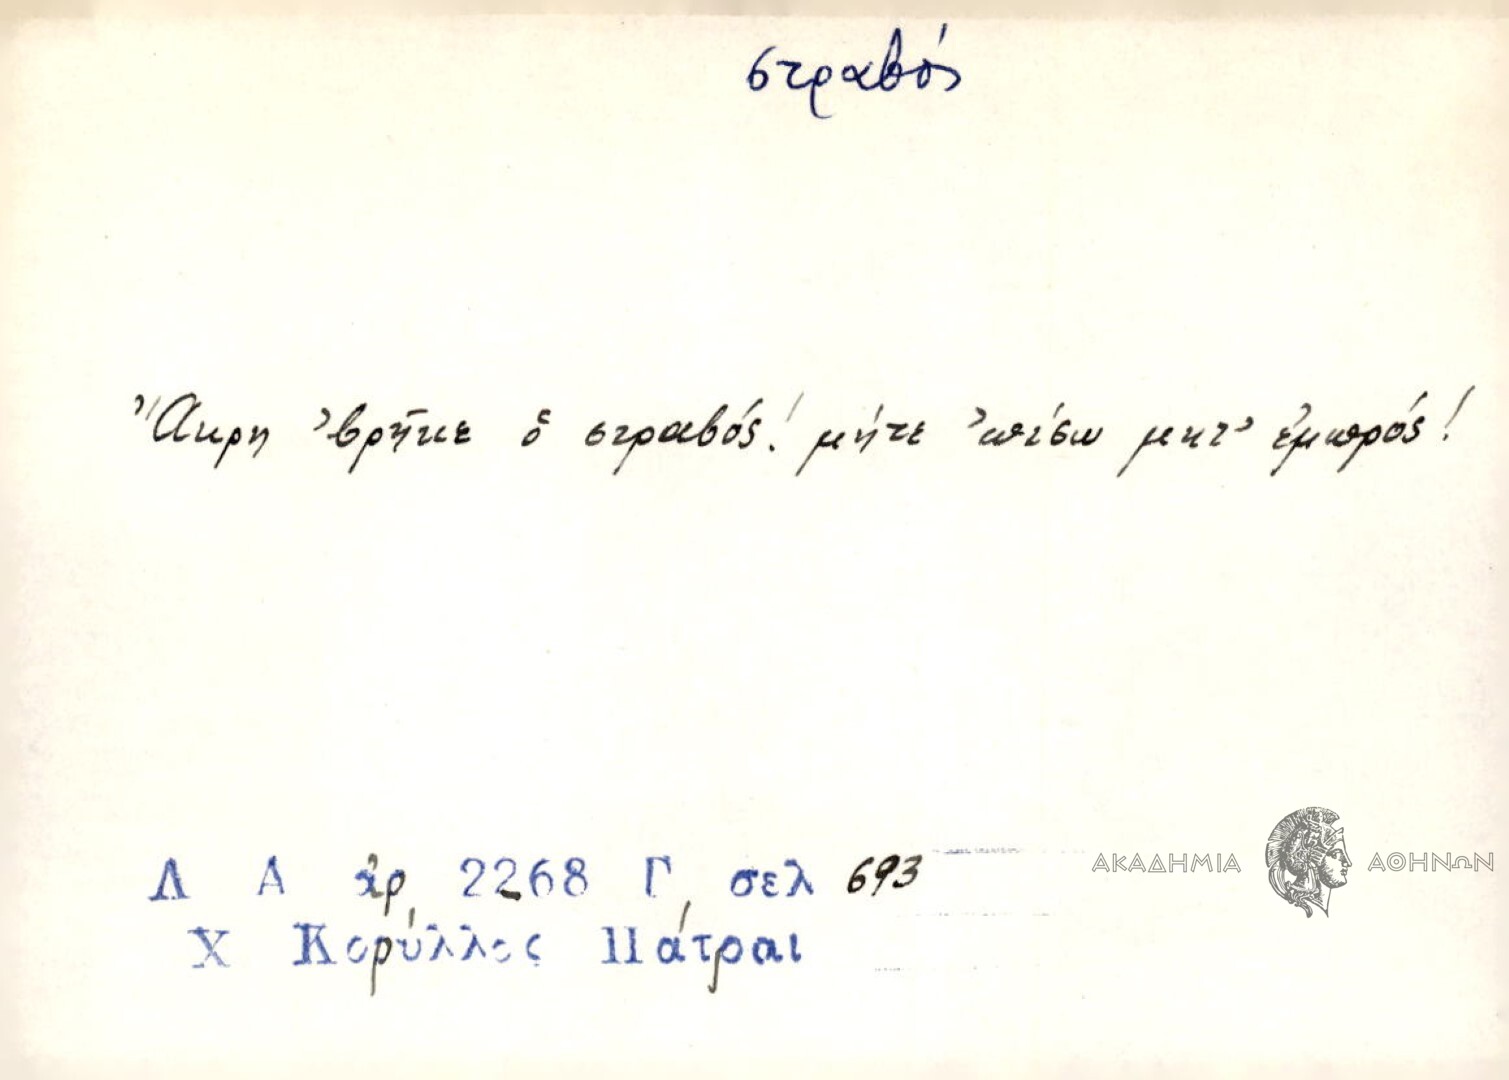 στραβός
Ἄκρη ᾿βρῆκε ὁ στραβός! μήτε ᾿πίσω μητ᾿ ἐμπρός!
Λ Α ἀρ 2268 Γ, σελ 693
ΑΚΑΔΗΜΙΑ ΑΘΗΝΩΝ
Χ Κορύλλος Πάτραι